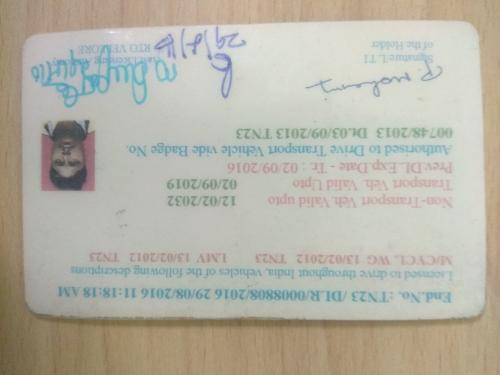 End.No. :TN23 /DLR/0008808/2016 29/08/2016 11:18:18 AM
Licensed to drive throughout India, vehicles of the following descriptions
M/CYCL. WG 13/02/2012 TN23 LMV 13/02/2012 TN23
Non-Transport Veh. Valid upto 12/02/2032
Transport Veh. Valid Upto 02/09/2019
Prev.DL.Exp.Date : Tr - 02/09/2016
Authorised to Drive Transport Vehicle vide Badge No.
00748/2013 Dt.03/09/2013 TN23
P. Mohan
Signature/L T I
of the Holder
Licensing Authority
RTO VELLORE